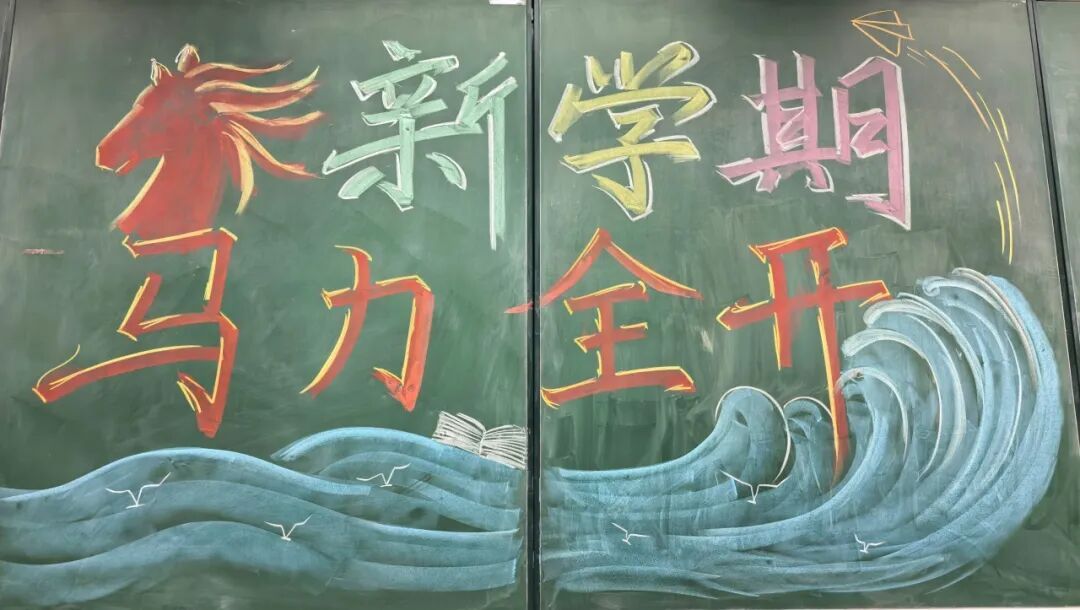 新学期
马力全开